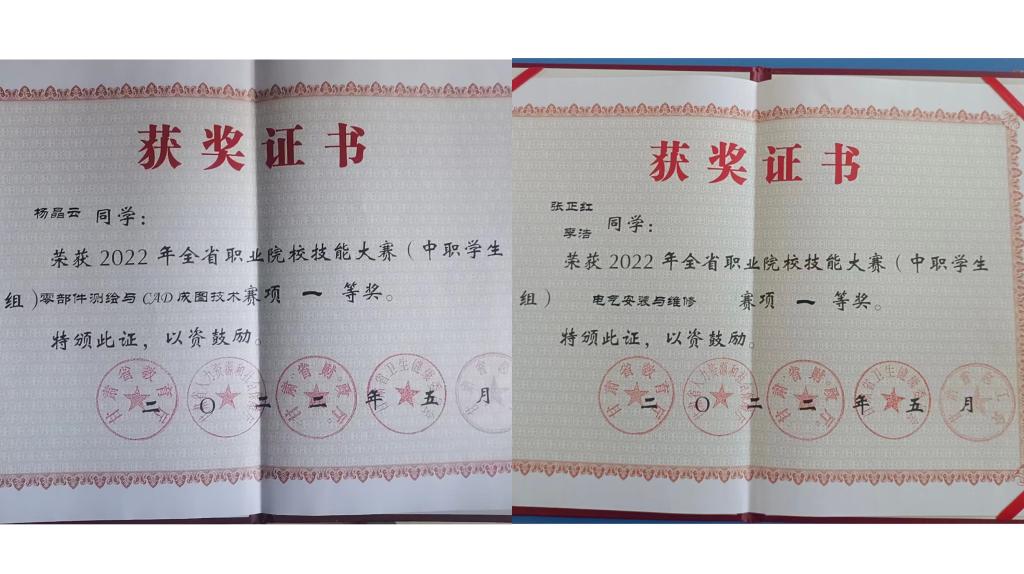 获奖证书
杨晶云 同学：
荣获 2022 年全省职业院校技能大赛（中职学生
组）零部件测绘与 CAD 成图技术赛项 一 等奖。
特颁此证，以资鼓励。
甘肃省教育厅
甘肃省财政厅
二〇二二年五月
获奖证书
张正红
李浩
同学：
荣获 2022 年全省职业院校技能大赛（中职学生
组） 电气安装与维修 赛项 一 等奖。
特颁此证，以资鼓励。
甘肃省教育厅
甘肃省财政厅
二〇二二年五月